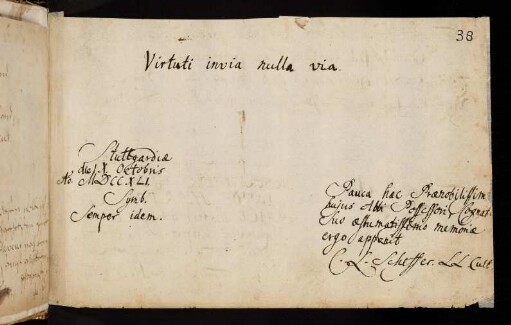 38
Virtuti invia nulla via.
Stuttgardiæ
die X. Octobris
Aō MDCCXLI.
Symb.
Semper idem.
Pauca hæc Prænobilissim
hujus Albi Possessori Cognat.
Suo æstumatissimo memoriæ
ergo apponit
C. L. Scheffer. LL Cult.